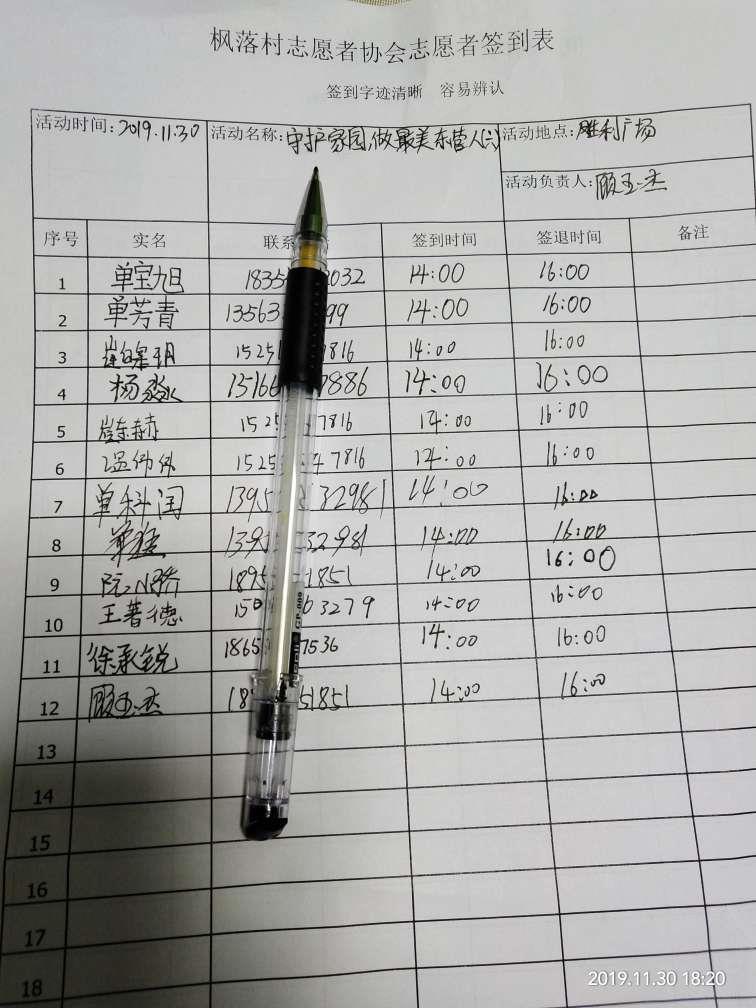 枫落村志愿者协会志愿者签到表
签到字迹清晰 容易辨认
活动时间:2019.11.30 活动名称:守护家园,做最美东营人(六) 活动地点:胜利广场
活动负责人:顾玉杰
序号 实名 联系 签到时间 签退时间 备注
1 单宝旭 1835 2032 14:00 16:00
2 单芳青 13563 99 14:00 16:00
3 1525 7816 14:00 16:00
4 杨淼 15166 7886 14:00 16:00
5 崔东赫 1525 7816 14:00 16:00
6 温伟伟 1525 7816 14:00 16:00
7 单科润 1395 32981 14:00 16:00
8 1395 32981 14:00 16:00
9 阮 1895 1851 14:00 16:00
10 王善德 150 63279 14:00 16:00
11 徐承锐 1865 7536 14:00 16:00
12 顾玉杰 18 51851 14:00 16:00
13
14
15
16
17
18
GP-009
2019.11.30 18:20